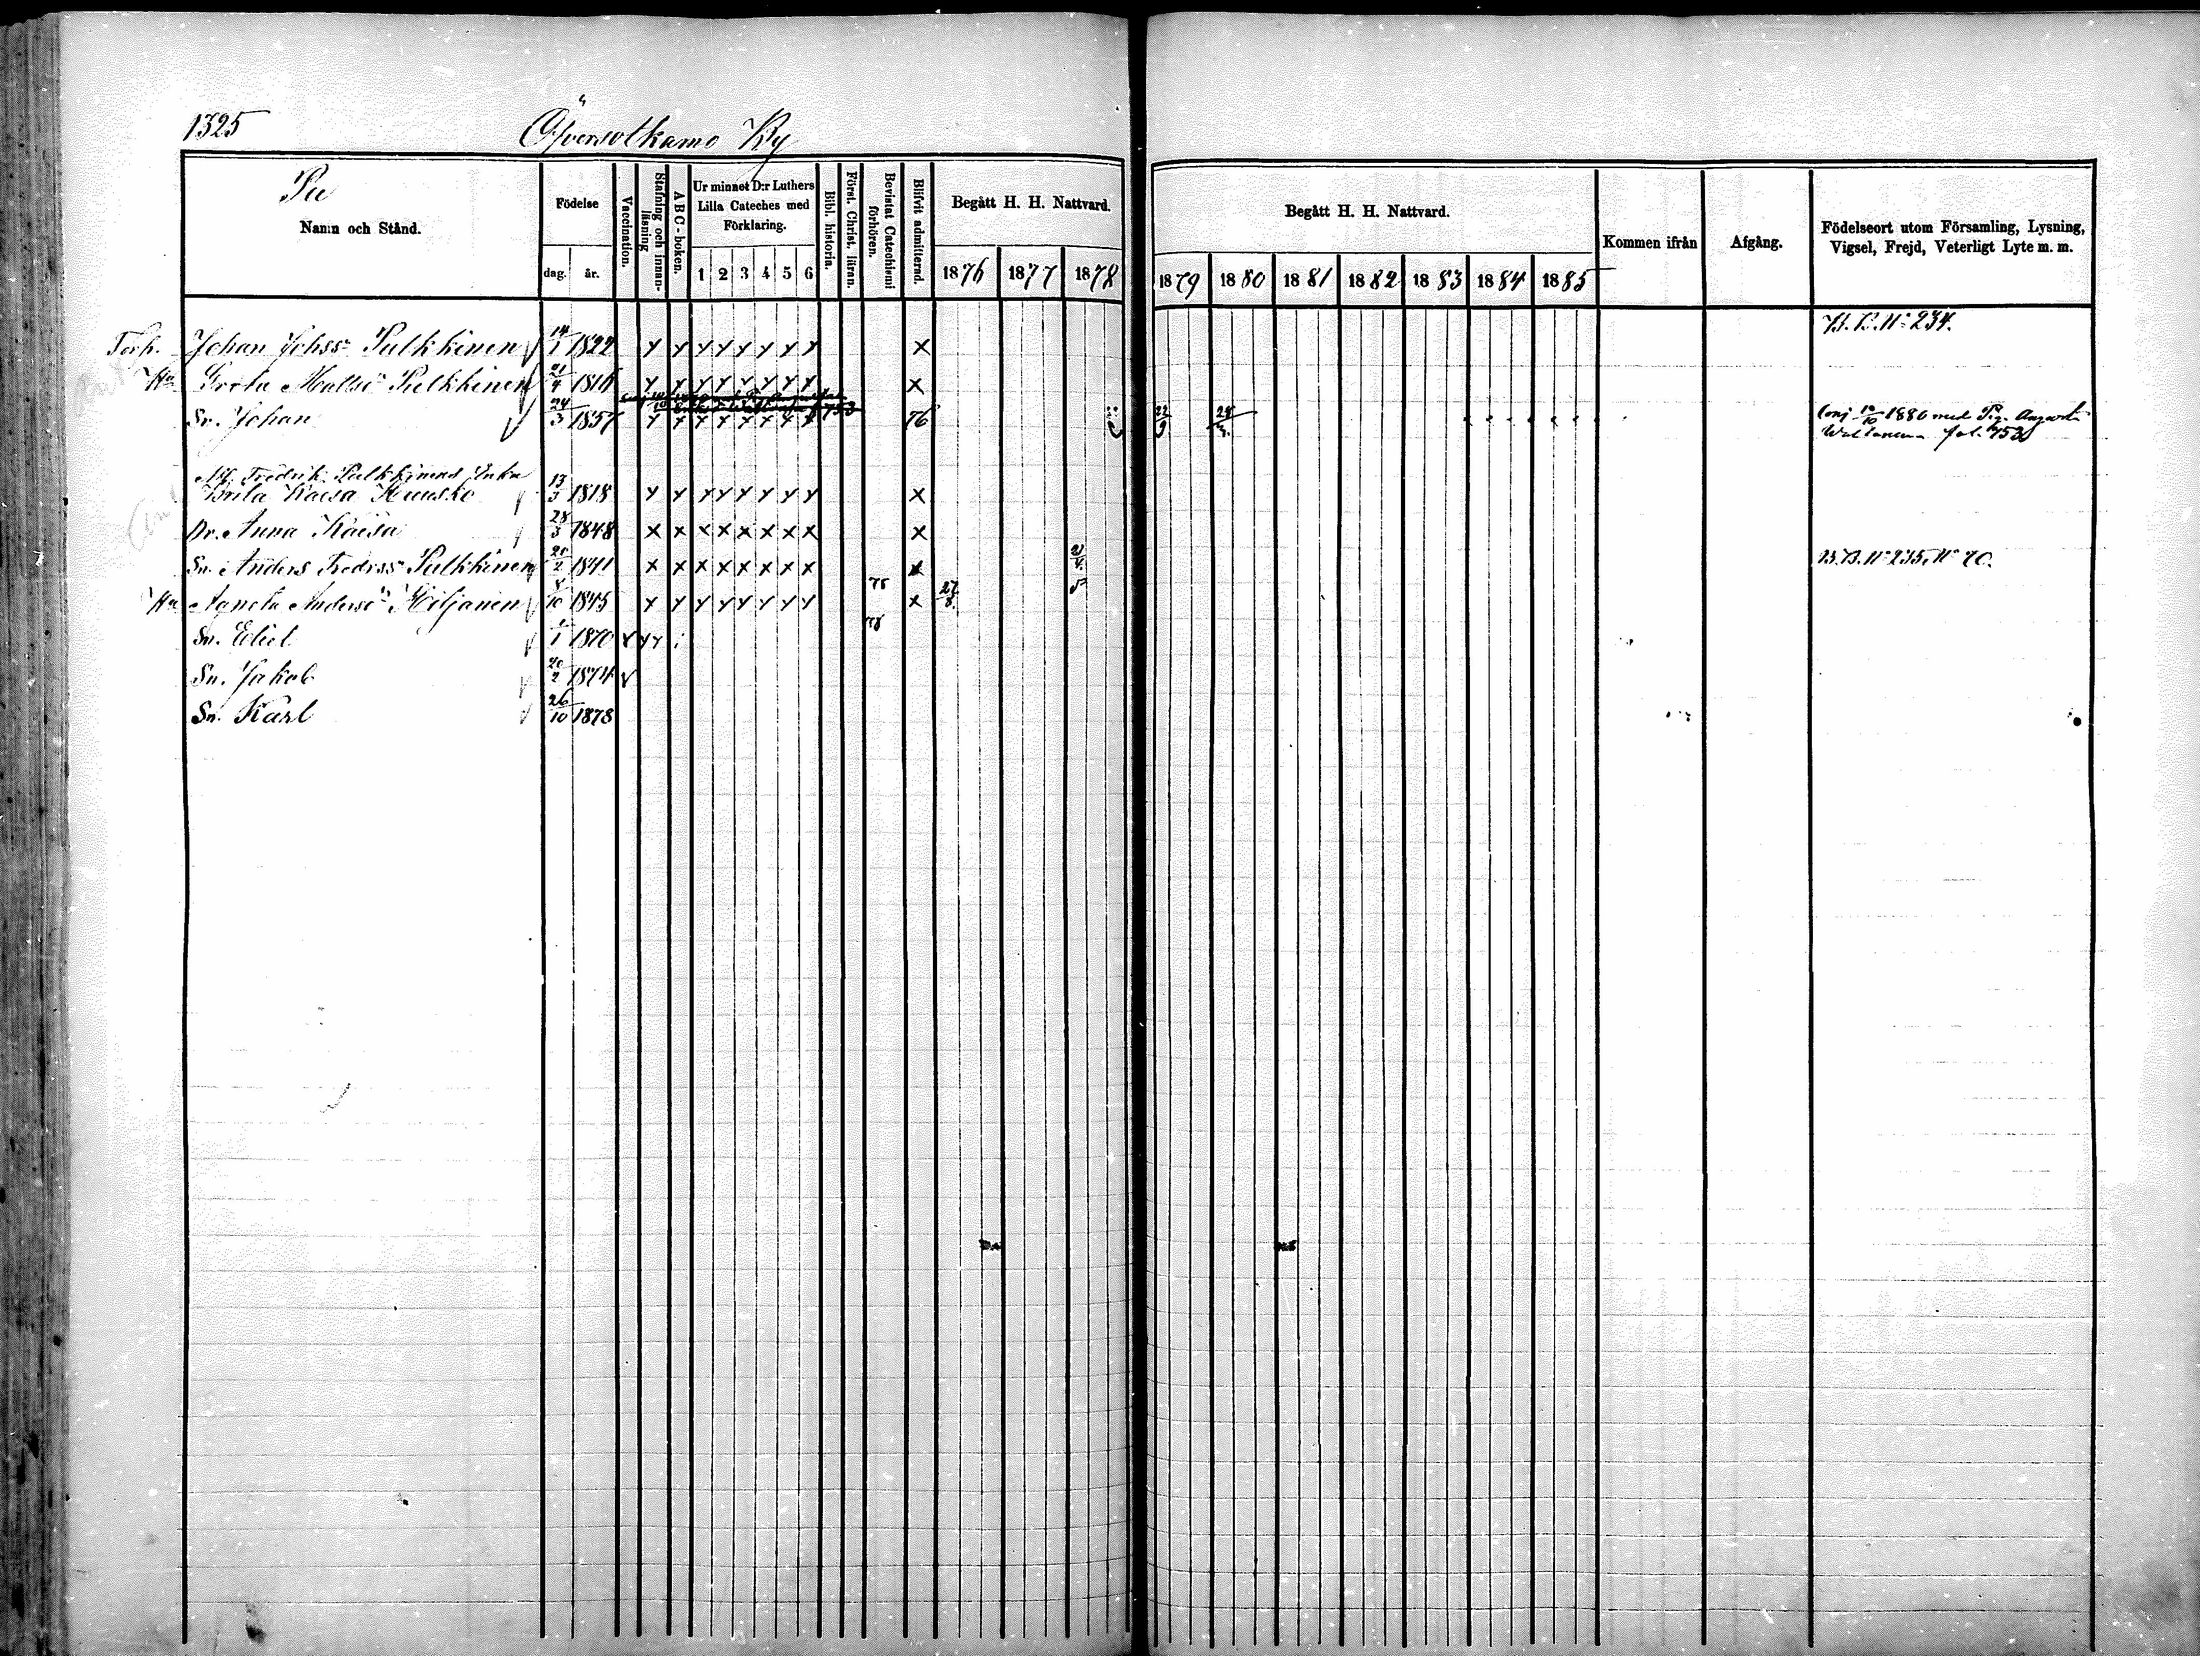 1325
Öfversotkamo By
Pu
Namn och Stånd.
Födelse
dag. år.
Vaccination.
Stafning och innanläsning
A B C - boken.
Ur minnet D:r Luthers Lilla Cateches med Förklaring.
1 2 3 4 5 6
Bibl. historia.
Först. Christ. läran.
Bevistat Catechismi förhören.
Blifvit admitterad.
Begått H. H. Nattvard.
1876 1877 1878
Begått H. H. Nattvard.
1879 1880 1881 1882 1883 1884 1885
Kommen ifrån
Afgång.
Födelseort utom Församling, Lysning,
Vigsel, Frejd, Veterligt Lyte m. m.
B. B. N:o 234.
Torp. Johan Johss:n Pulkkinen 14/1 1822 x x x x x x x x x
Hu Greta Mattsd:r Pulkkinen 21/4 1816 x x x x x x x x x
Sn. Johan 24/3 1857 x x x x x x x x 76 22/9
Conj 10/10 1880 med Pig. Augusta
fol. 753
Fredrik Pulkkinens Enka
Brita Kaisa Huusko 13/3 1818 x x x x x x x x x
Dr. Anna Kaisa 28/3 1848 x x x x x x x x x
Sn. Anders Fredrss:n Pulkkinen 20/2 1841 x x x x x x x x x
B. B. N:o 235. N:o 70.
Hu Agneta Andersd:r Kiljanen 8/10 1845 x x x x x x x x 78 x 27/8
Sn. Eliel 1/1 1870 78
Sn. Jakob 20/2 1874 v
Sn. Karl 26/10 1878